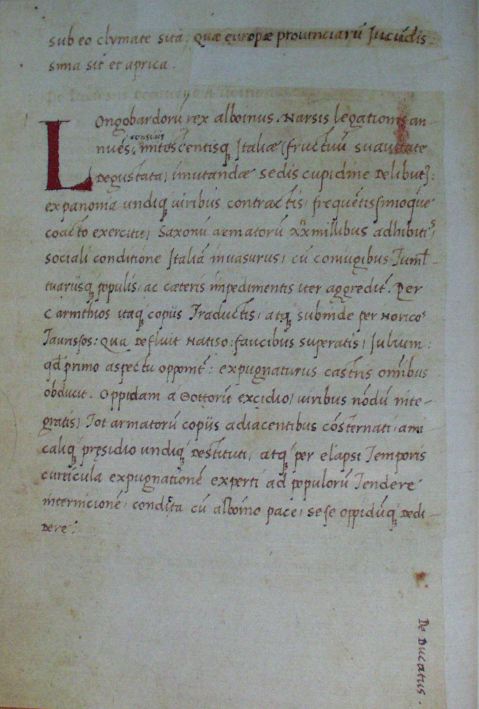 sub eo clymate sita, quæ europæ prouinciarũ Jucũdis-
sima sit et aprica.
Longobardorũ rex alboinus. Narsis legationi an-
nuẽs, mitescentisq Italiæ fructuũ suauitate
degustata, imutandæ sedis cupidine
expanonia undiq uiribus contractis, frequẽtissimoque
coacto exercitu, Saxonũ armatorũ millibus adhibitis
sociali conditione Italiã inuasurus, cũ coniugibus
populis, ac cæteris impedimentis iter aggredit. Per
Carinthios itaq copiis Traductis, atq subinde per Noricos
Tauriscos: qua defluit Natiso: faucibus superatis, Iulium:
qd primo aspectu: expugnaturus castris omibus
obducit. Oppidani à Gottorũ excidio, uiribus nõdũ inte-
gratis, Tot armatorũ copiis adiacentibus cõsternati, ami
caliq pręsidio undiq destituti, atq per elapsi Temporis
curricula expugnationẽ experti ad populorũ Tendere
internicionẽ, condita cũ alboino pace, sese oppidũq dedi-
dere.
De Ducatus.